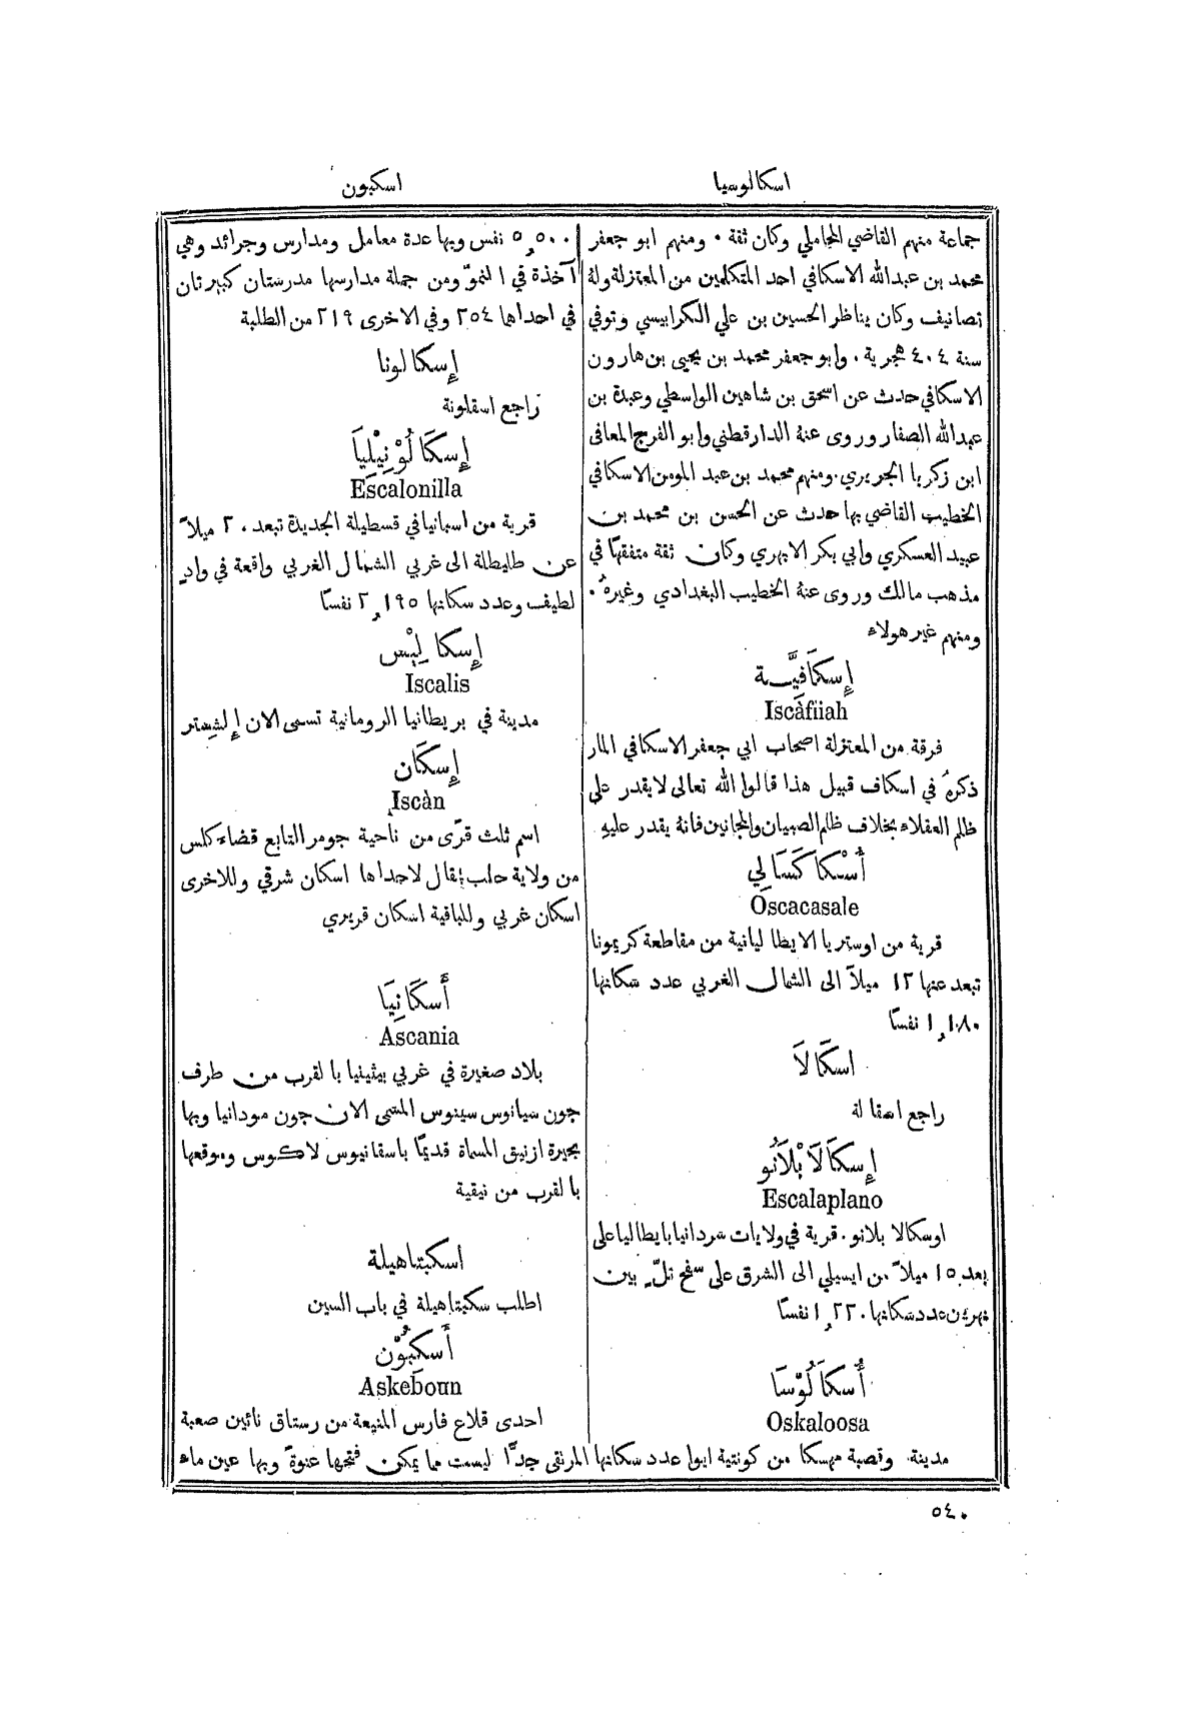 اسكالوسيا
اسكبون
جماعة منهم القاضي المحاملي وكان ثقة ٠ ومنهم ابو جعفر
محمد بن عبدالله الاسكافي احد المتكلمين من المعتزلة ولهُ
تصانيف وكان يناظر الحسين بن علي الكرابيسي وتوفي
سنة ٤٠٤ هجرية ٠ وابو جعفر محمد بن يحيى بن هارون
الاسكافي حدث عن اسحق بن شاهين الواسطي وعبدة بن
عبدالله الصفار وروى عنهُ الدارقطني وابو الفرج المعافى
ابن زكريا الجريري ٠ ومنهم محمد بن عبد المومن الاسكافي
الخطيب القاضي بها حدث عن الحسن بن محمد بن
عبيد العسكري وابي بكر الابهري وكان ثقة متفقهًا في
مذهب مالك وروى عنهُ الخطيب البغدادي وغيرهُ ٠
ومنهم غير هولاء
إِسكَافِيَّة
Iscàfiiah
فرقة من المعتزلة اصحاب ابي جعفر الاسكافي المار
ذكرهُ في اسكاف قبيل هذا قالوا الله تعالى لا يقدر على
ظلم العقلاء بخلاف ظلم الصبيان والمجانين فانهُ يقدر عليهِ
أُسْكَاكَسَالِي
Oscacasale
قرية من اوستريا الايطاليانية من مقاطعة كريمونا
تبعد عنها ١٢ ميلاً الى الشمال الغربي عدد سكانها
١,١٨٠ نفسًا
اسكَالَا
راجع اسقالة
إِسكَالَابْلَانُو
Escalaplano
اوسكالا بلانو ٠ قرية في ولايات سردانيا بايطاليا على
بعد ١٥ ميلاً من ايسيلي الى الشرق على سفح تلٍّ بين
نهرين عدد سكانها ١,٢٢٠ نفسًا
أُسكَالُوْسَا
Oskaloosa
مدينة وقصبة مهسكا من كونتية ايوا عدد سكانها
٥,٥٠٠ نفس وبها عدة معامل ومدارس وجرائد وهي
آخذة في النموّ ومن جملة مدارسها مدرستان كبيرتان
في احداها ٢٥٤ وفي الاخرى ٢١٩ من الطلبة
إِسكالونا
راجع اسقلونة
إِسكَالُوْنِيْلِيَا
Escalonilla
قرية من اسبانيا في قسطيلة الجديدة تبعد ٢٠ ميلاً
عن طليطلة الى غربي الشمال الغربي واقعة في وادٍ
لطيف وعدد سكانها ٢,١٩٥ نفسًا
إِسكالِيْس
Iscalis
مدينة في بريطانيا الرومانية تسمى الان إِلشِستر
إِسكَان
Iscàn
اسم ثلث قرًى من ناحية جومر التابع قضاء كلس
من ولاية حلب يقال لاحداها اسكان شرقي وللاخرى
اسكان غربي وللباقية اسكان قريري
أَسكَانِيَا
Ascania
بلاد صغيرة في غربي بيثينيا بالقرب من طرف
جون سيانوس سينوس المسمى الان جون مودانيا وبها
بحيرة ازنيق المسماة قديمًا باسقانيوس لاكوس وموقعها
بالقرب من نيقية
اسكبتاهيلة
اطلب سكبتاهيلة في باب السين
أَسكِبُوْن
Askeboun
احدى قلاع فارس المنيعة من رستاق نائين صعبة
المرتقى جدًّا ليست مما يمكن فتحها عنوةً وبها عين ماء
٥٤٠